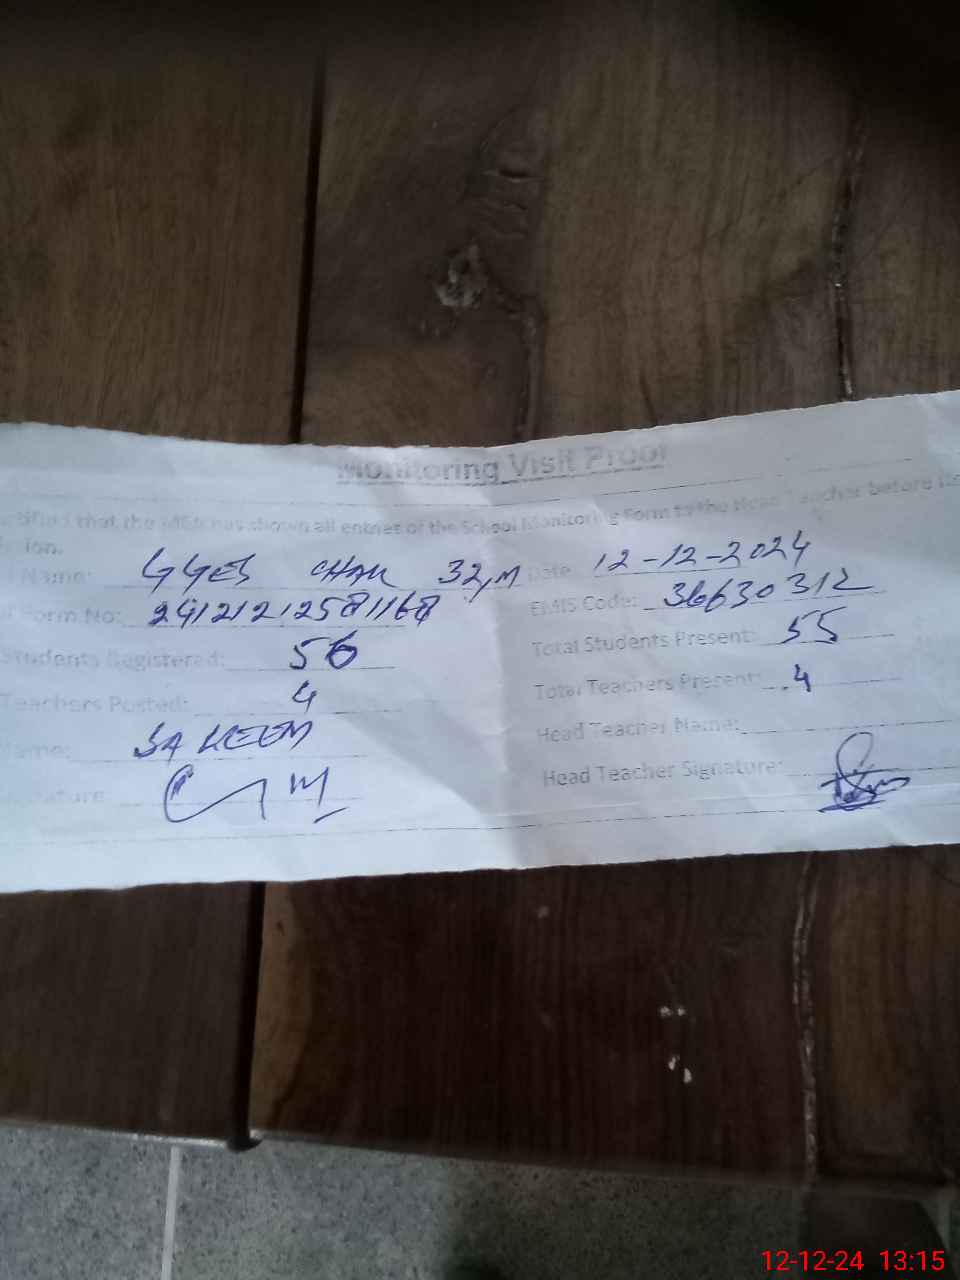 Monitoring Visit Proof
that the MEA has shown all entries of the School Monitoring Form to the Head Teacher before
ion.
Name: GGES CHAK 32/M Date: 12-12-2024
Form No: EMIS Code: 36630312
Students Registered: 56 Total Students Present: 55
Teachers Posted: 4 Total Teachers Present: 4
Name: SALEEM Head Teacher Name:
Signature Head Teacher Signature:
12-12-24 13:15